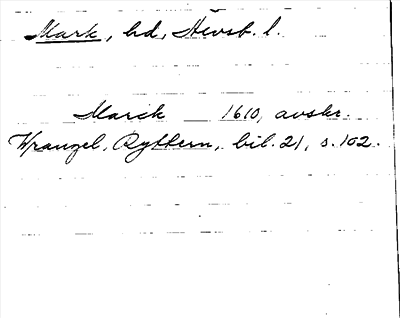 Mark, hd, Hevsb. l.
Marck 1610, avskr.
Wrangel, Ryttern, bil. 21, s. 102.